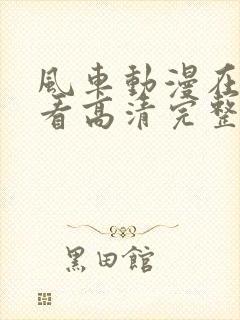 風車動漫在
看高清完整
黑田館